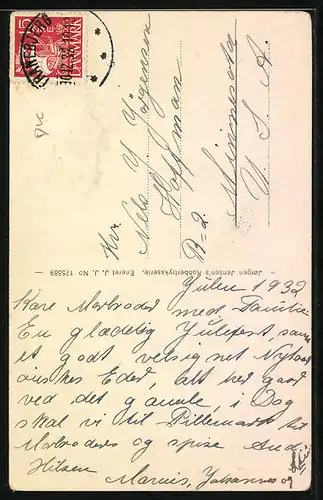 15
DANMARK
Hr.
Nels J Jörgenson
Hoffman
R=2.
Minnesota
U. S. A.
— Jørgen Jensen's Kobbertryksserie, Eneret J. J. No 125589 —
Julen 1932
Kære Morbroder med Familie
En glædelig Julefest, samt
et godt velsignet Nytaar
ønskes Eder, alt her gaar
ved det gamle, i Dag
skal vi til Tillemark hos
Morbroders og spise And.
Hilsen
Marius, Johannes og